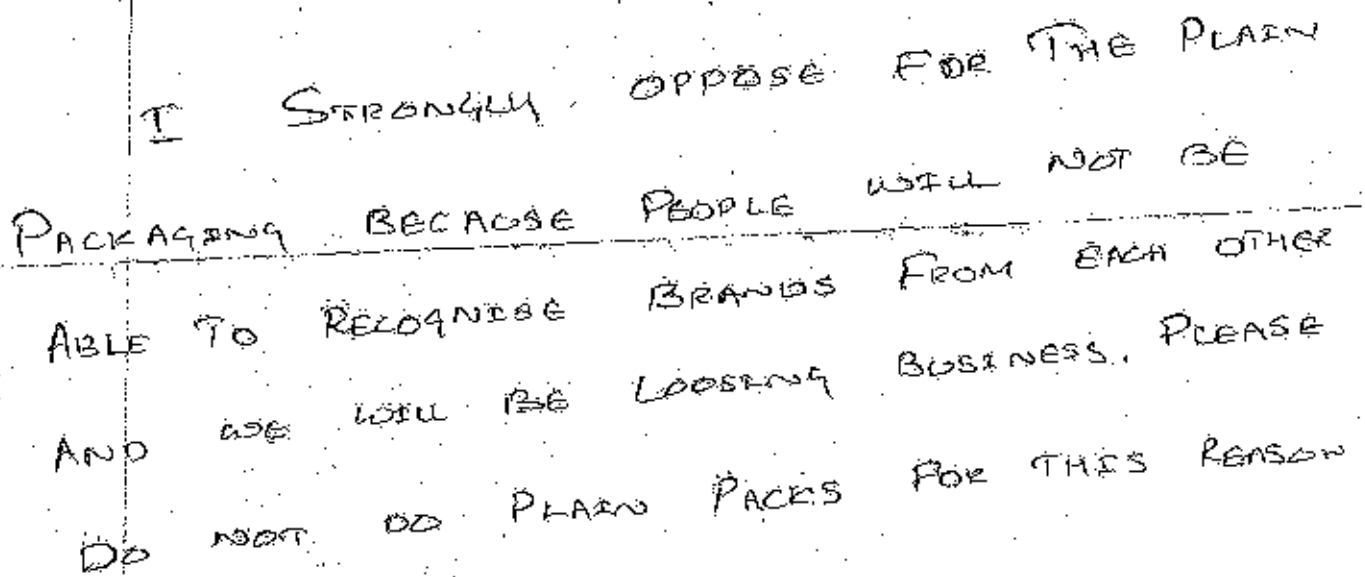 I STRONGLY OPPOSE FOR THE PLAIN
PACKAGING BECAUSE PEOPLE WILL NOT BE
ABLE TO RECOGNISE BRANDS FROM EACH OTHER
AND WE WILL BE LOOSING BUSINESS. PLEASE
DO NOT DO PLAIN PACKS FOR THIS REASON